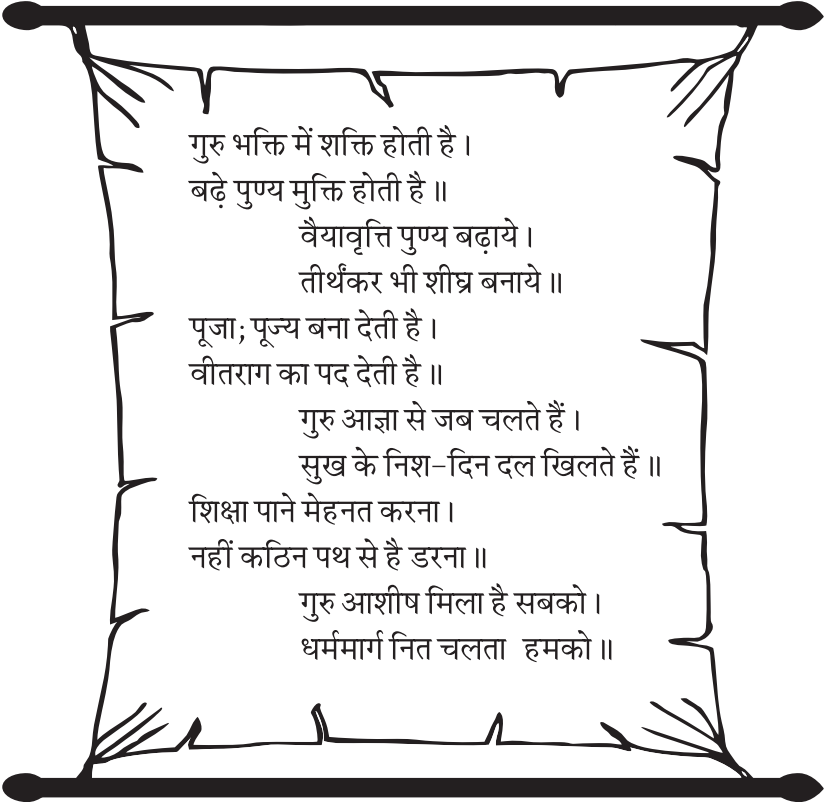 गुरु भक्ति में शक्ति होती है।
बढ़े पुण्य मुक्ति होती है॥
वैयावृत्ति पुण्य बढ़ाये।
तीर्थंकर भी शीघ्र बनाये॥
पूजा; पूज्य बना देती है।
वीतराग का पद देती है॥
गुरु आज्ञा से जब चलते हैं।
सुख के निश-दिन दल खिलते हैं॥
शिक्षा पाने मेहनत करना।
नहीं कठिन पथ से है डरना॥
गुरु आशीष मिला है सबको।
धर्ममार्ग नित चलता हमको॥